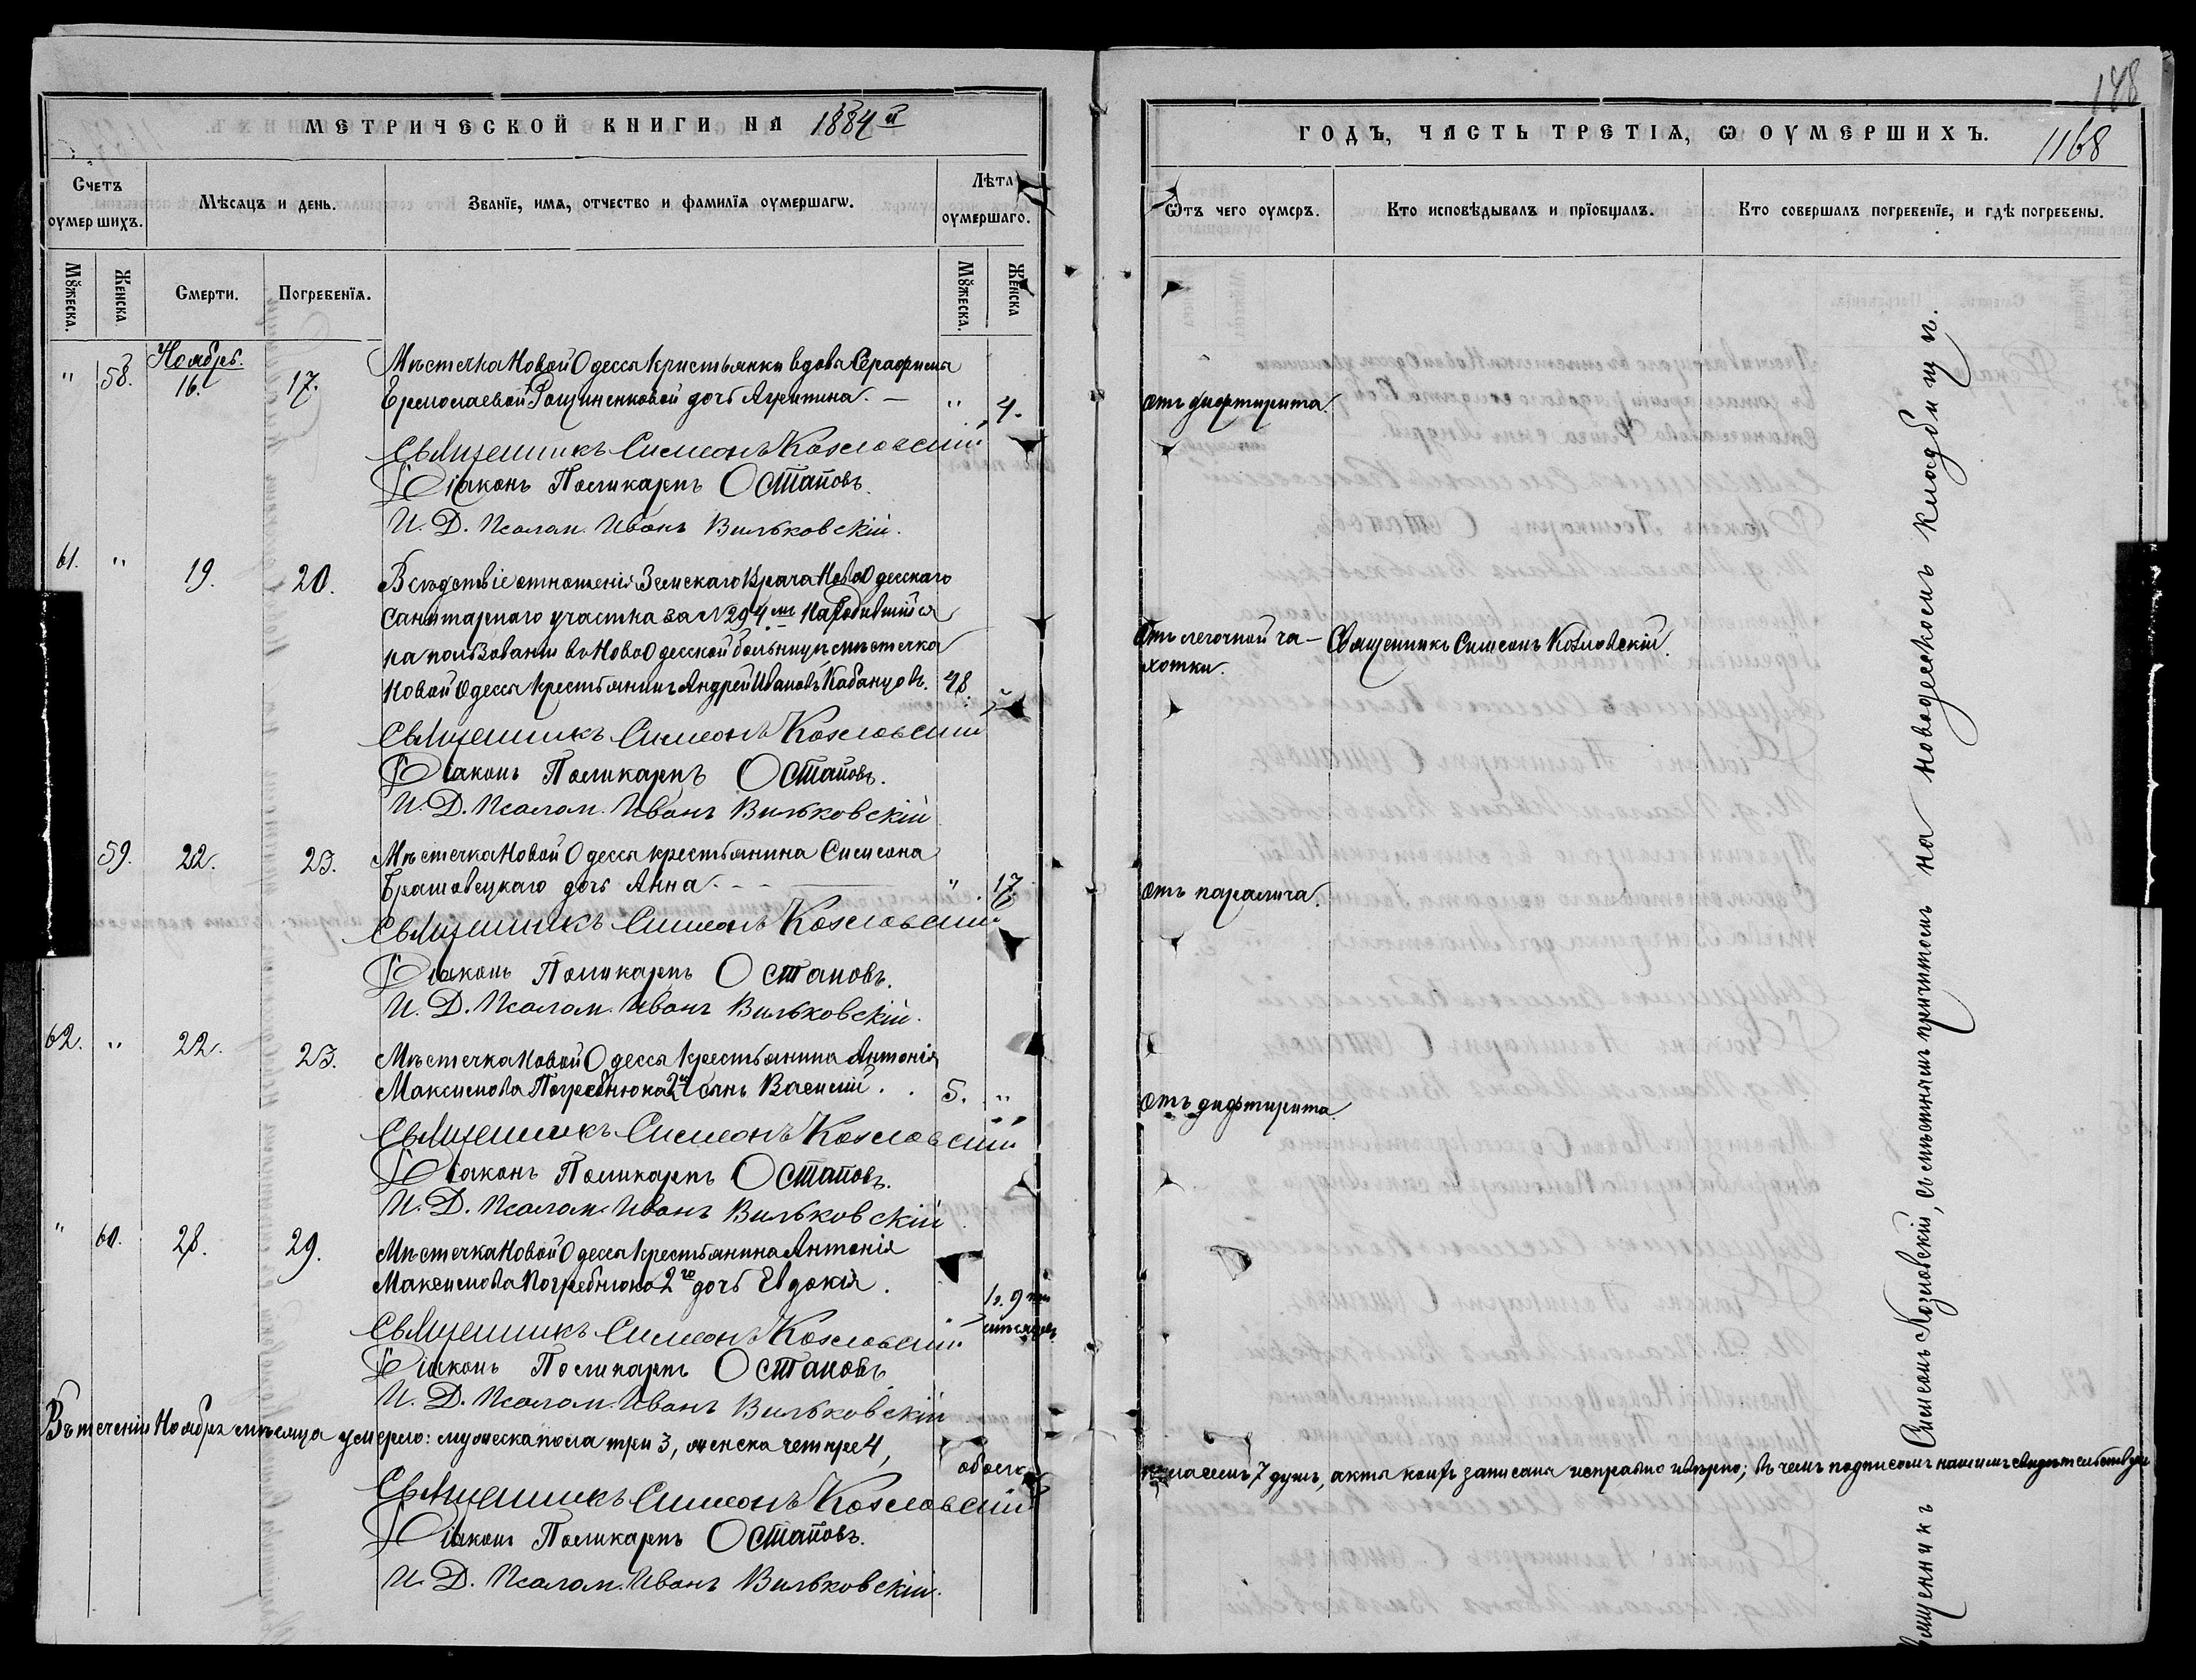 МЕТРИЧЕСКОЙ КНИГИ НА 1884й
Счетъ оумершихъ.
Мѣсяцъ и день.
Званїе, имя, отчество и фамилїя оумершагѡ.
Лѣта оумершаго.
Мꙋжеска.
Женска
Смерти.
Погребенїя.
Мꙋжеска.
Женска
Ноябрь.
" 58. 16. 17. Мѣстечка Новой Одессы кристьянки вдовы Серафимы
Ермолаевой дочь " 4.
Священникъ Симеонъ Козловскій
Діаконъ Поликарпъ Остаповъ.
И. Д. Псалом. Иванъ Вильковскій.
61. " 19. 20. Вслѣдствіе отношенія Земскаго Врача НовоОдесскаго
санитарнаго участка за №294мъ находившійся
на пользованіи въ НовоОдесской больницѣ мѣстечка
Новой Одессы крестьянинъ Андрей Ивановъ Кабанцовъ. 48. "
Священникъ Симеонъ Козловскій
Діаконъ Поликарпъ Остаповъ.
И. Д. Псалом. Иванъ Вильковскій
59. 22. 23. Мѣстечка Новой Одессы крестьянина Симеона
дочь Анна. " 17
Священникъ Симеонъ Козловскій
Діаконъ Поликарпъ Остаповъ.
И. Д. Псалом. Иванъ Вильковскій.
62. " 22. 23. Мѣстечка Новой Одессы крестьянина Антонія
Максимова Погребнюка 2го сынъ Василій. 5. "
Священникъ Симеонъ Козловскій
Діаконъ Поликарпъ Остаповъ.
И. Д. Псалом. Иванъ Вильковскій
" 60. 28. 29. Мѣстечка Новой Одессы крестьянина Антонія
Максимова Погребнюка 2го дочь Евдокія. " 1 г. 9 ти
мѣсяцевъ
Священникъ Симеонъ Козловскій
Діаконъ Поликарпъ Остаповъ
И. Д. Псалом. Иванъ Вильковскій
Въ теченіи Ноября мѣсяца умерло: мужеска пола три 3, женска четыре 4, обоего
Священникъ Симеонъ Козловскій
Діаконъ Поликарпъ Остаповъ.
И. Д. Псалом. Иванъ Вильковскій.
148
ГОДЪ, ЧАСТЬ ТРЕТІЯ, Ѡ ОУМЕРШИХЪ.
1168
Ѿтъ чего оумеръ.
Кто исповѣдывалъ и прїобщалъ.
Кто совершалъ погребенїе, и гдѣ погребены.
отъ дифтирита.
Отъ легочной ча-
хотки.
Священникъ Симеонъ Козловскій.
отъ паралича.
отъ дифтирита.
пола семь 7 душъ, акты коихъ записаны исправно и вѣрно; въ чемъ подписомъ нашимъ свидѣтельствуемъ
Священникъ Симеонъ Козловскій, съ мѣстнымъ причтомъ на новодесскомъ кладбищѣ.